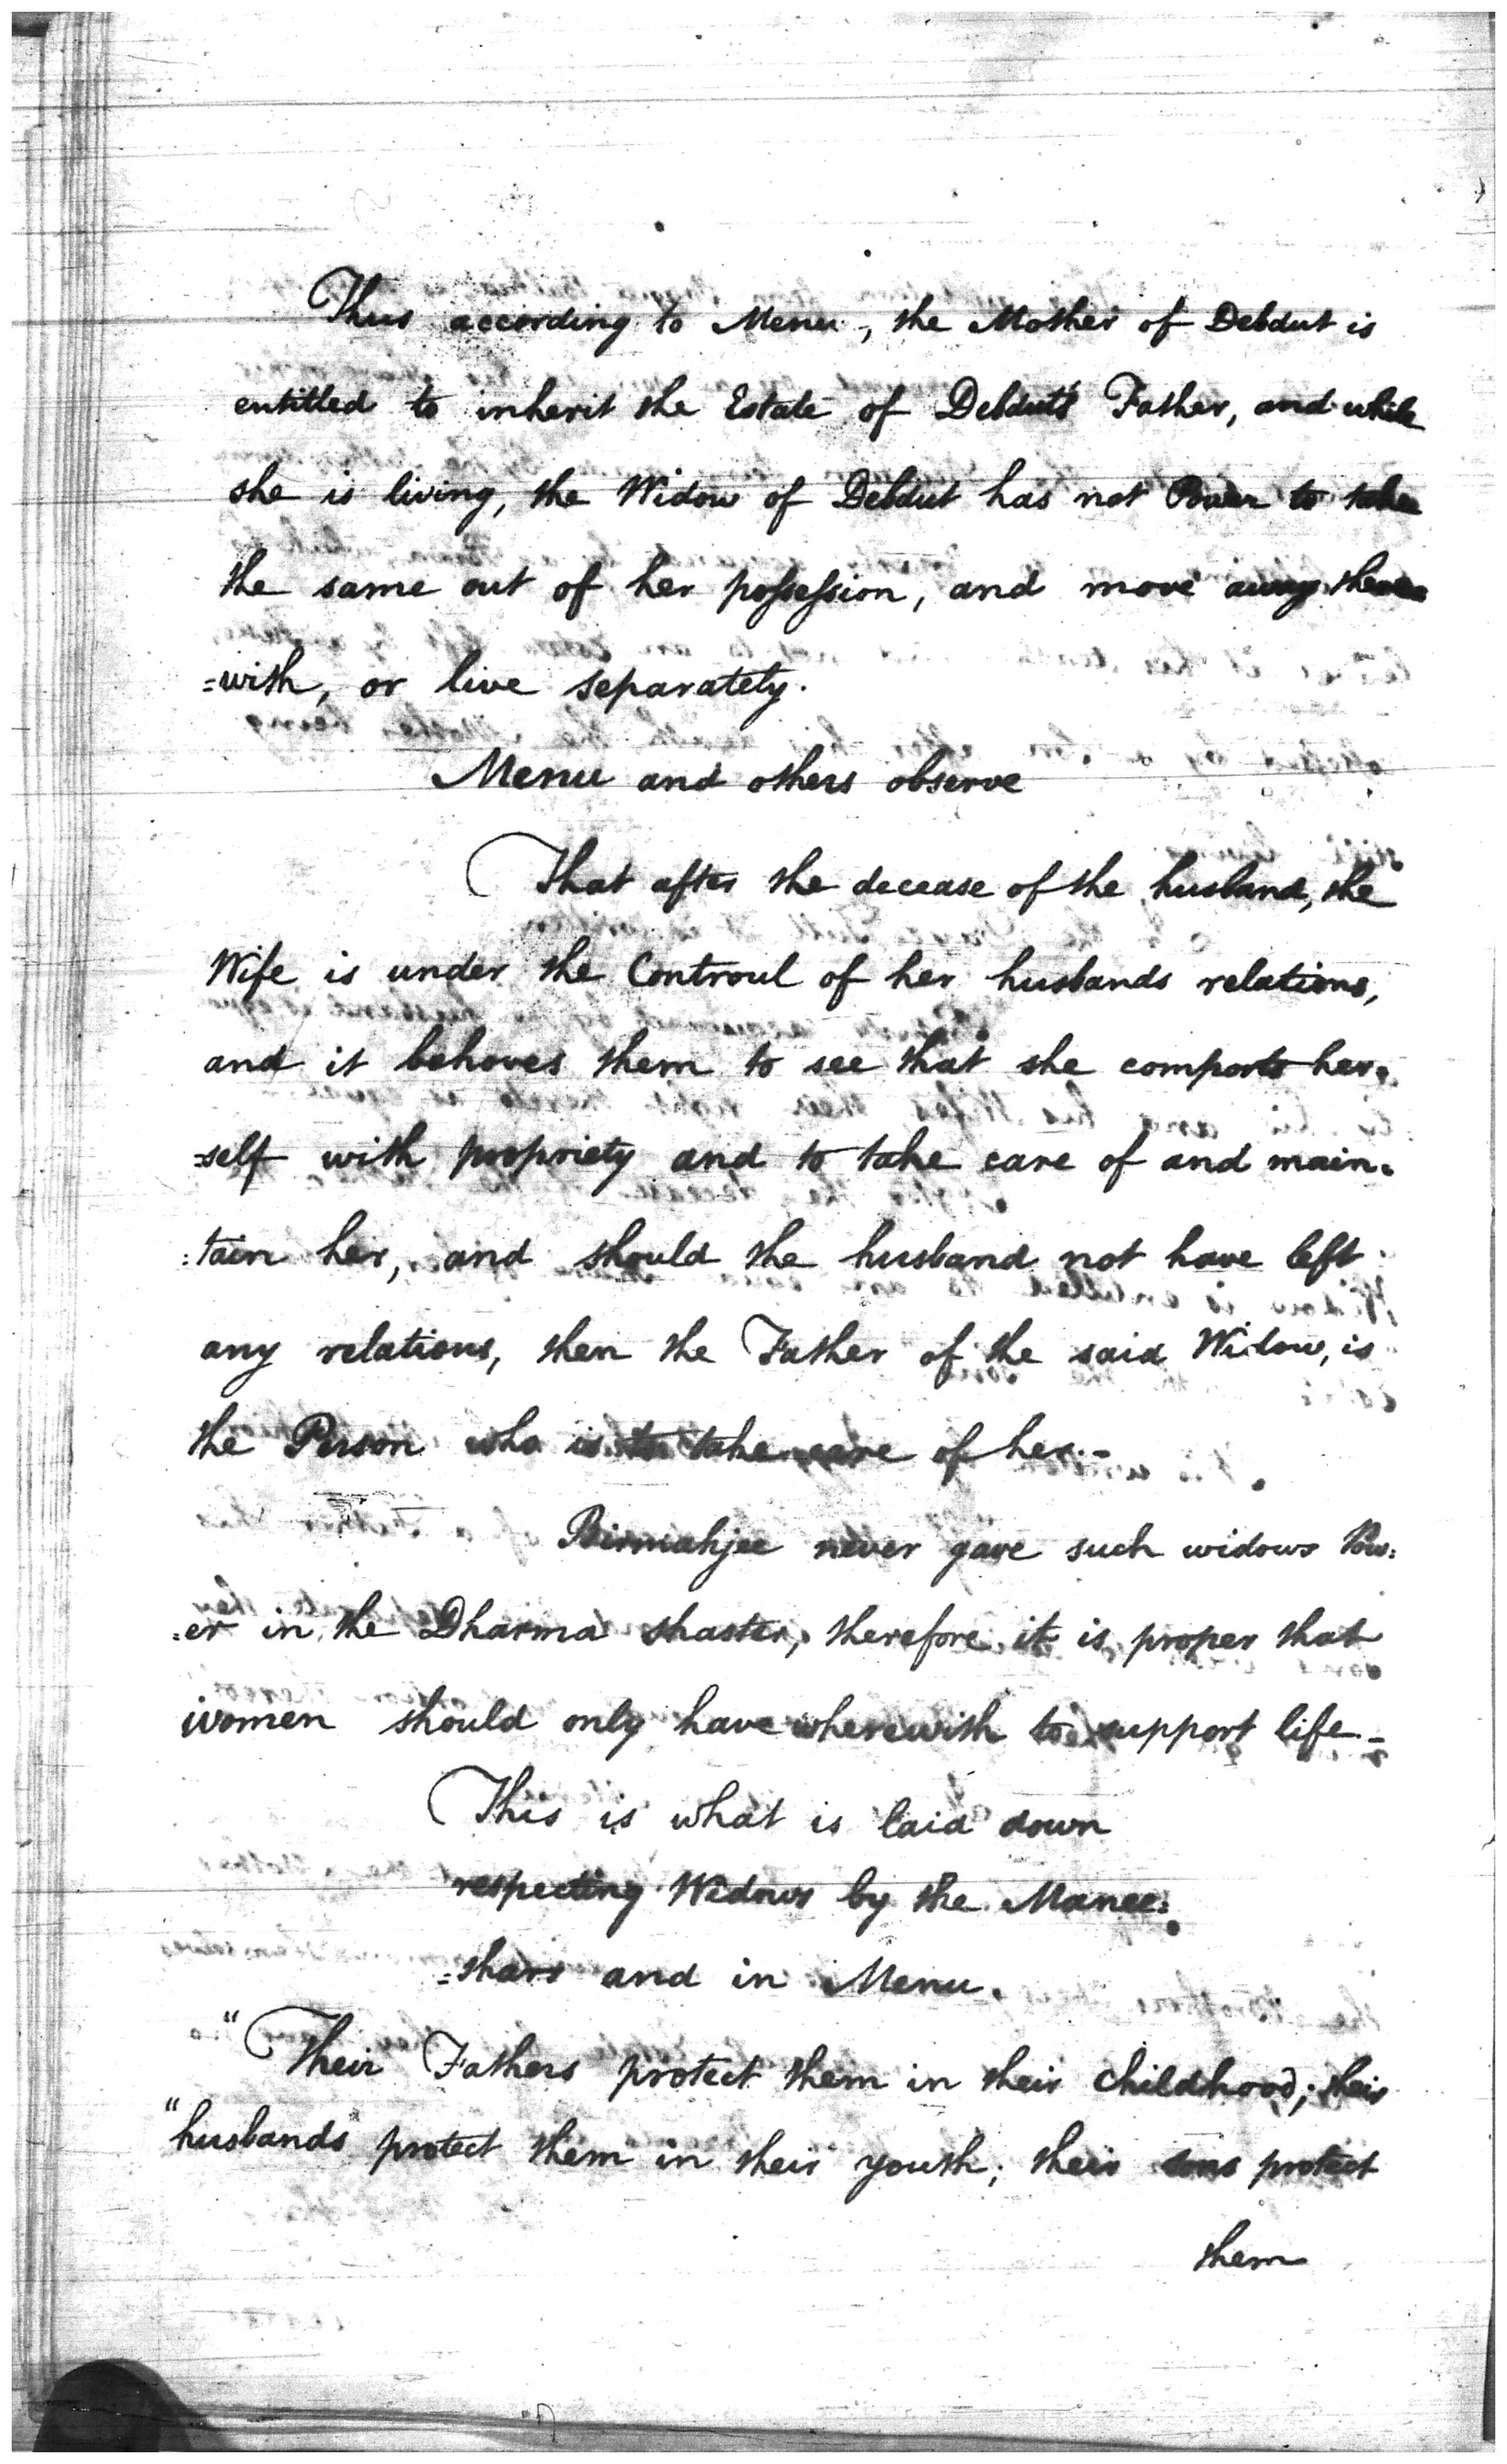 Thus according to Menu, the Mother of Debdut is
entitled to inherit the Estate of Debdut's Father, and while
she is living, the Widow of Debdut has not Power to take
the same out of her possession, and move away there
=with, or live separately.
Menu and others observe
That after the decease of the husband, the
Wife is under the Controul of her husbands relations,
and it behoves them to see that she comports her=
=self with propriety and to take care of and main=
=tain her, and should the husband not have left
any relations, then the Father of the said Widow, is
the Person who is to take care of her.-
Birmahjee never gave such widows Pow=
=er in the Dharma shaster, therefore it is proper that
women should only have wherewith to support life.-
This is what is laid down
respecting Widows by the Manee=
=shars and in Menu.
"Their Fathers protect them in their childhood; their
"husbands protect them in their youth; their sons protect
them